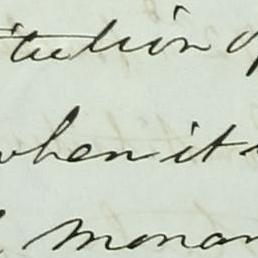 itution of
when it
monar